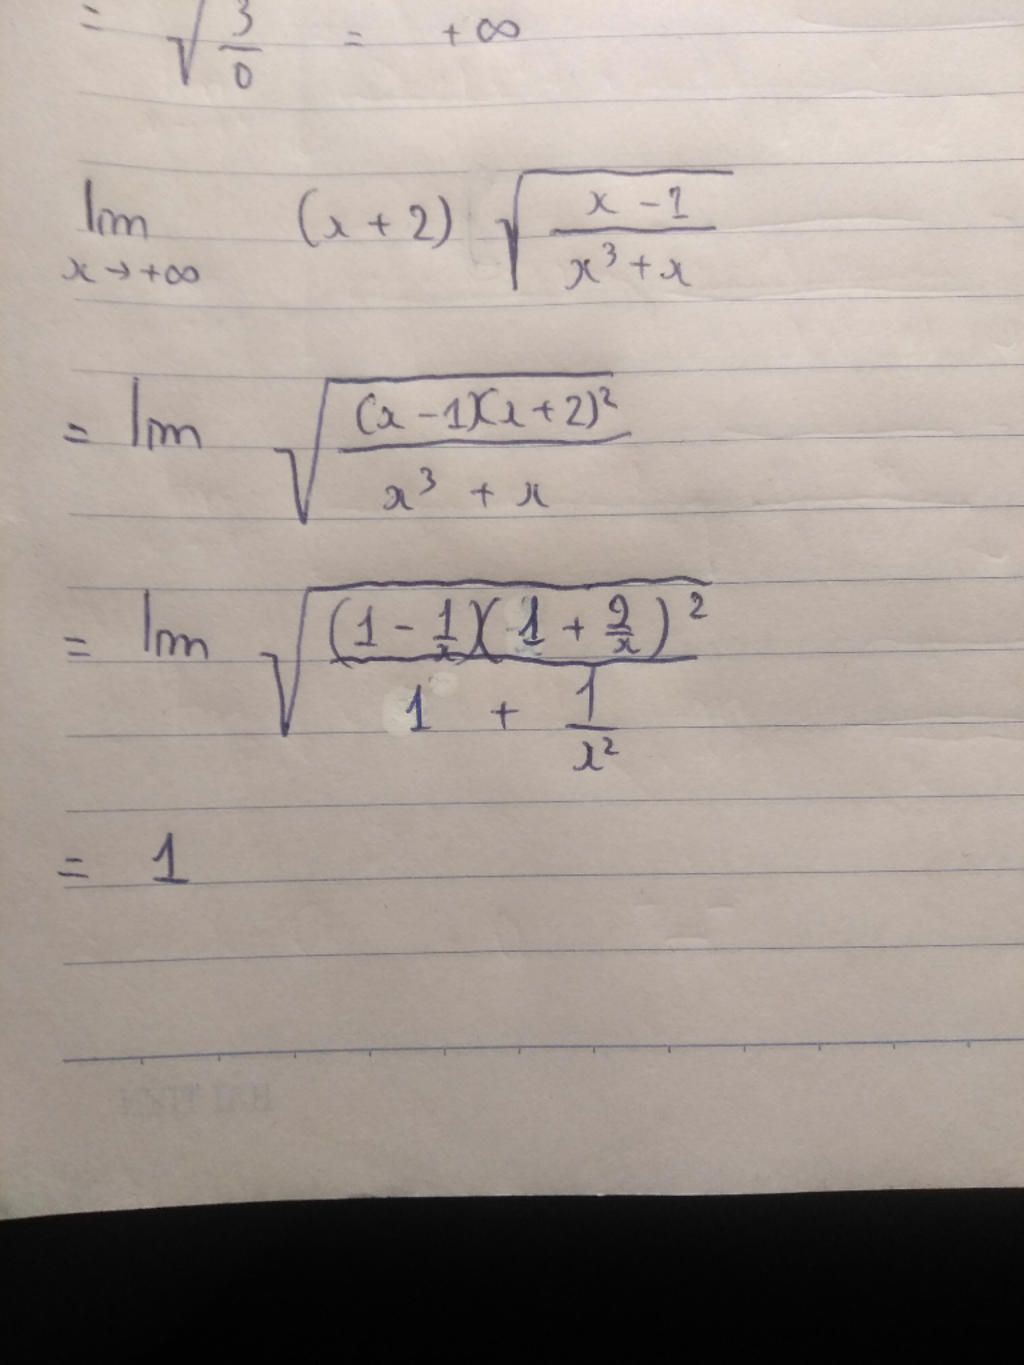 = √(3/0) = +∞
lim x→+∞ (x + 2) √((x - 1)/(x³ + x))
= lim √((x - 1)(x + 2)²/(x³ + x))
= lim √((1 - 1/x)(1 + 2/x)²/(1 + 1/x²))
= 1